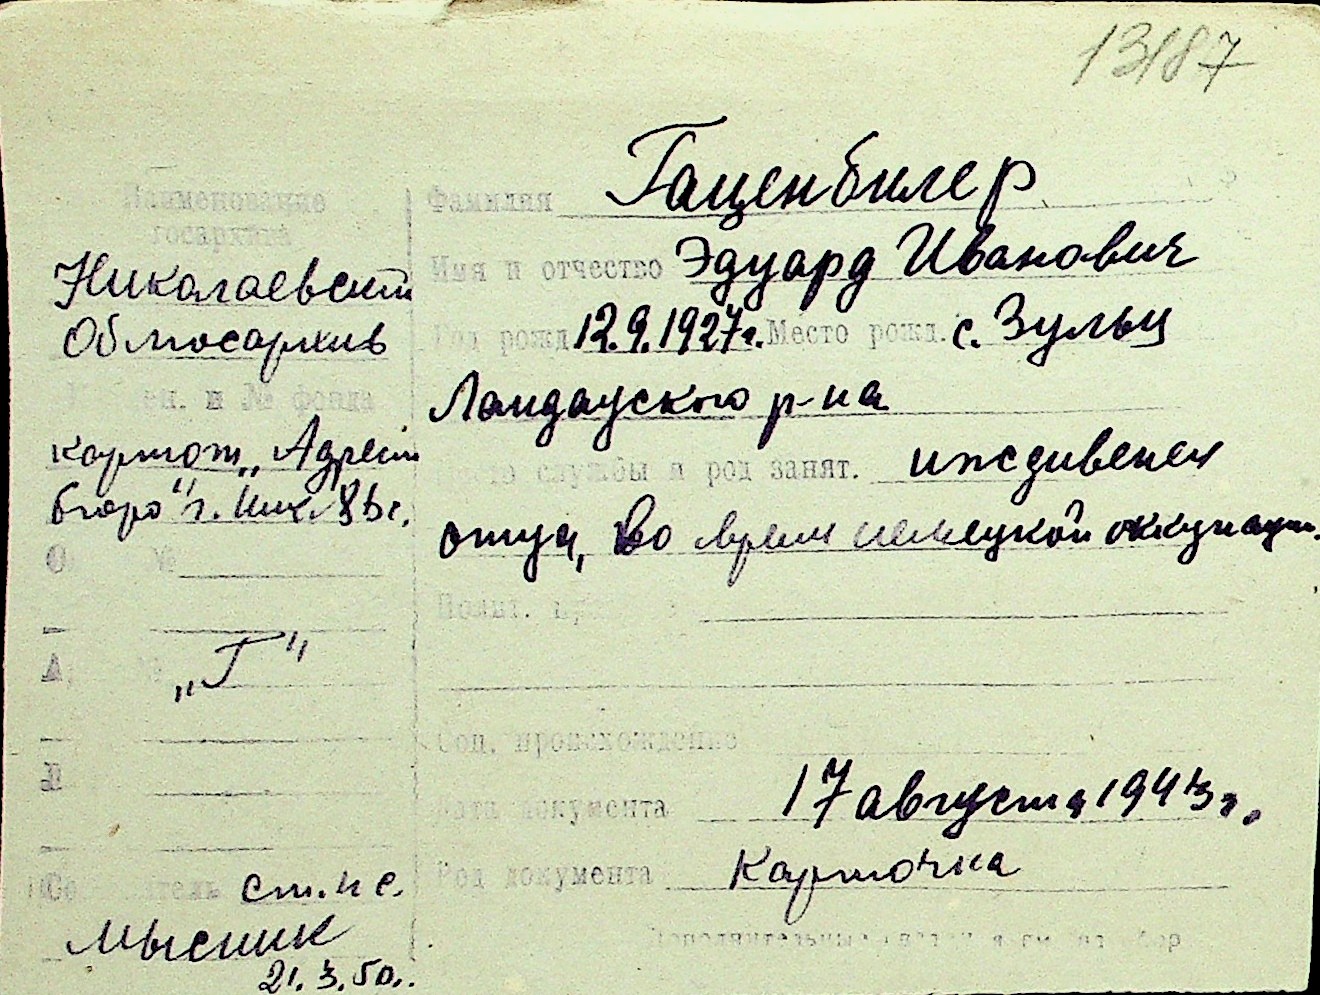 13187
Наименование
госархива
Николаевский
Облгосархив
ен. и № фонда
картот. „Адресн
бюро" г. Ник.
№
„Г"
ст. н с.
Мысник
21.3.50.
Фамилия Гаценбилер
Имя и отчество Эдуард Иванович
Год рожд. 12.9.1927 г. Место рожд. с. Зульц
Ландауского р-на
Место службы и род занят. иждивенец
отца, во время немецкой оккупации.
Полит.
Соц. происхождение
Дата документа 17 августа 1943 г.
Род документа Карточка
Дополнительные